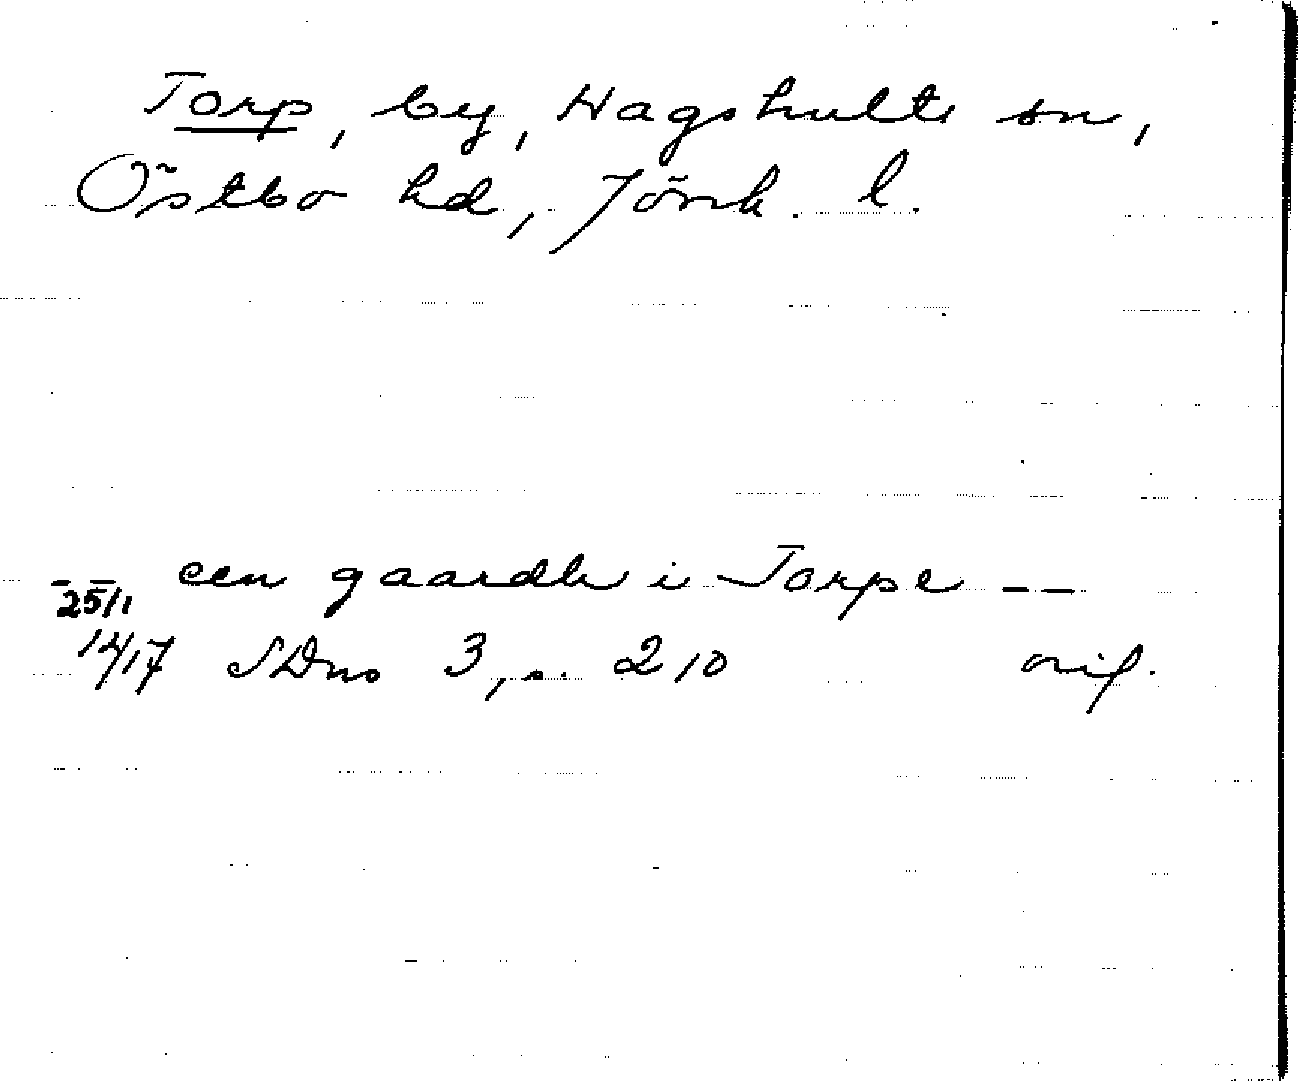 Torp, by, Hagshults sn,
Östbo hd, Jönk. l.
een gaardh i Torpe — —
25/1
1417 SDns 3, s. 210 orig.